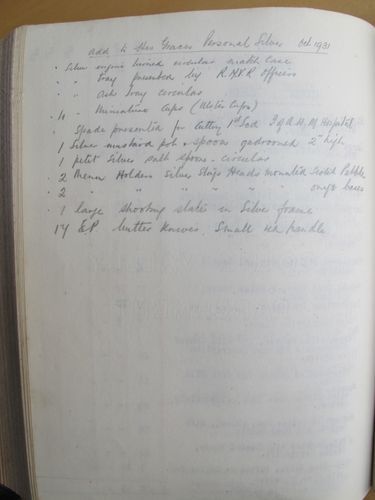 add to His Graces Personal Silver Oct. 1931
· Silver engine turned circular match case
· " Tray presented by R.N.V.R Officers
· " Ash Tray circular
4 " Miniature Cups (Ulster Cups)
· Spade presented for cutting 1st Sod Hospital
1 Silver mustard pot & spoon gadrooned 2" high
1 petit Silver salt spoon - circular
2 Menu Holders Silver Stags Heads mounted Pebble
2 " " " " " " onyx bases
· 1 large shooting slates in Silver frame
14 EP butter knives. Small handle